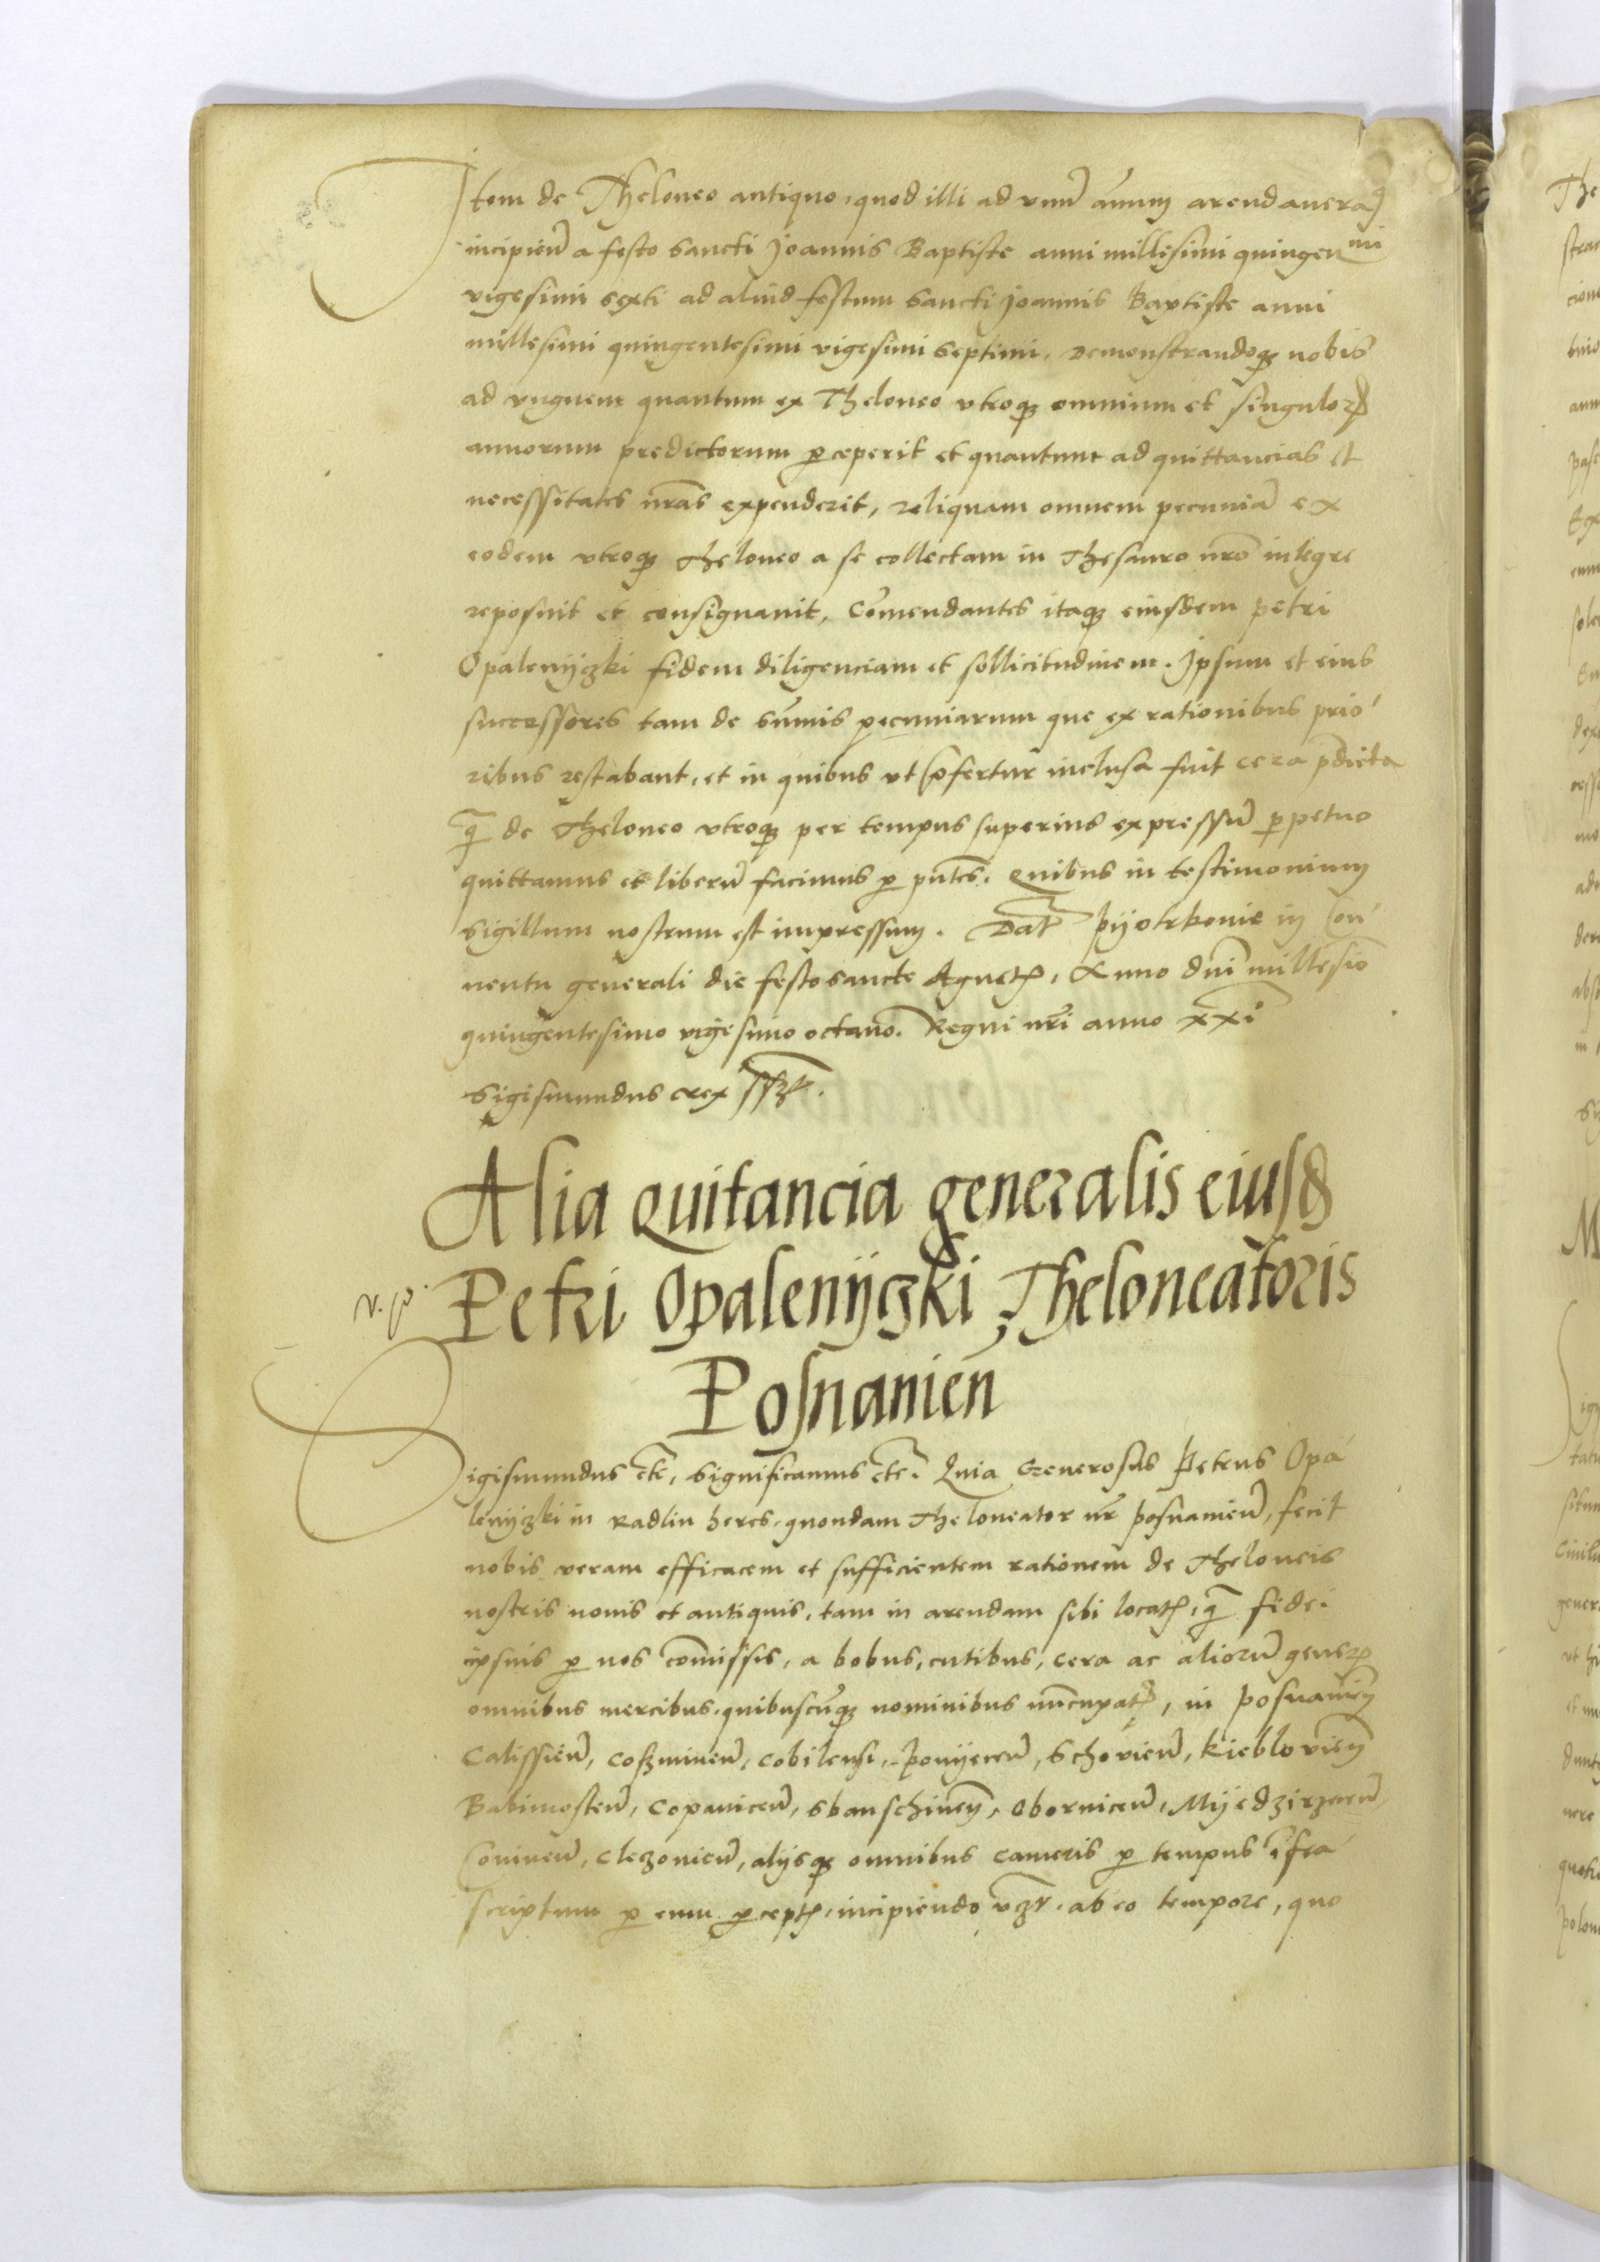 Item de Theloneo antiquo, quod illi ad vnũ ãnum arendauera
incipieñ a festo sancti Joannis Baptiste anni millesimi quingenmi
vigesimi sexti ad aliud festum sancti Joannis Baptiste anni
millesimi quingentesimi vigesimi septimi. Demonstrandoqꝫ nobis
ad vnguem quantum ex Theloneo vtroqꝫ omnium et singuloꝝ
annorum predictorum ꝑceperit et quantum ad quittancias et
necessitates nr̃as expenderit, reliquam omnem pecuniã ex
eodem vtroqꝫ Theloneo a se collectam in Thesauro nr̃o integre
reposuit et consignauit, Com̃endantes itaqꝫ eiusdem petri
Opalenÿczki fidem diligenciam et sollicitudinem. Ipsum et eius
successores tam de sum̃is pecuniarum que ex rationibus prio
ribus restabant, et in quibus vt p̃fertur inclusa fuit cera p̃dicta
q̃ de Theloneo vtroqꝫ per tempus superius expressũ ꝑpetuo
quittamus et liberũ facimus ꝑ pñtes. Quibus in testimonium
sigillum nostrum est impressum. Dat̃ Pÿotrkouie in Con
uentu generali die festo sancte Agnetꝭ, Anno dñi millesĩo
quingentesimo vigesimo octauo. Regni nr̃i anno xxi
Sigismundus rex sszt.
Alia quitancia generalis eiusđ
Petri Opalenÿczki Theloneatoris
Posnanień
Sigismundus etc̃, significamus etc̃. Quia Generosus Petrus Opa
lenÿczki in Radlin heres, quondam Theloneator nr̃ posnanieñ, fecit
nobis veram efficacem et sufficientem rationem de Theloneis
nostris nouis et antiquis, tam in arendam sibi locatꝭ, q̃ fidei
ipsius ꝑ nos com̃issis, a bobus, cutibus, cera ac aliorũ geneꝝ
omnibus mercibus, quibuscũqꝫ nominibus nũcupatꝭ, in posnanieñ
Calissieñ, Coszmineñ, Cobilensi, Ponÿeceñ, Schouieñ, Kieblovieñ
Babimosteñ, Copaniceñ, Sbanschineñ, Oborniceñ, Mÿedzirzeceñ
Conineñ, Cleczouieñ, alÿsqꝫ omnibus cameris ꝑ tempus ĩfra
scriptum ꝑ eum ꝑceptꝭ, incipiendo vcz̃t. ab eo tempore, quo